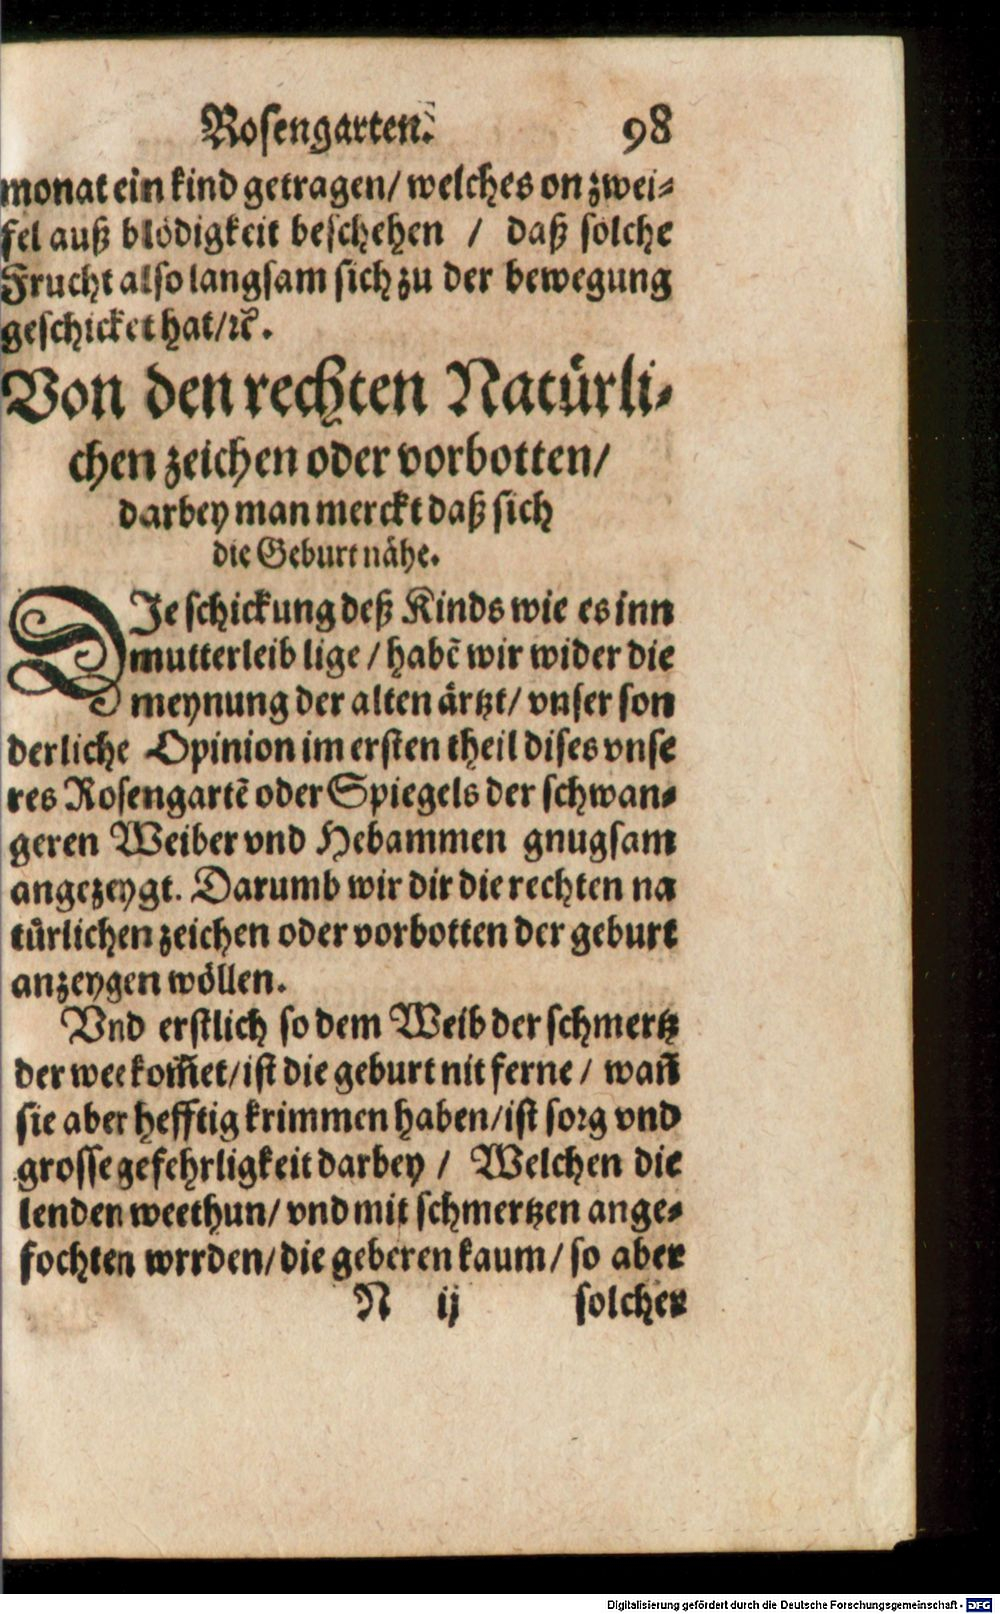 Rosengarten. 98
monat ein kind getragen/ welches on zwei⸗
fel auß blödigkeit beschehen / daß solche
Frucht also langsam sich zu der bewegung
geschicket hat/ ꝛc̃.
Von den rechten Natürli⸗
chen zeichen oder vorbotten/
darbey man merckt daß sich
die Geburt nähe.
DJe schickung deß Kinds wie es inn
mutterleib lige / habẽ wir wider die
meynung der alten ärtzt/ vnser son
derliche Opinion im ersten theil dises vnse
res Rosengartẽ oder Spiegels der schwan⸗
geren Weiber vnd Hebammen gnugsam
angezeygt. Darumb wir dir die rechten na
türlichen zeichen oder vorbotten der geburt
anzeygen wöllen.
Vnd erstlich so dem Weib der schmertz
der wee kom̃et/ ist die geburt nit ferne / wañ
sie aber hefftig krimmen haben/ ist sorg vnd
grosse gefehrligkeit darbey / Welchen die
lenden wee thun/ vnd mit schmertzen ange⸗
fochten wrrden/ die geberen kaum/ so aber
N ij solcher
Digitalisierung gefördert durch die Deutsche Forschungsgemeinschaft - DFG